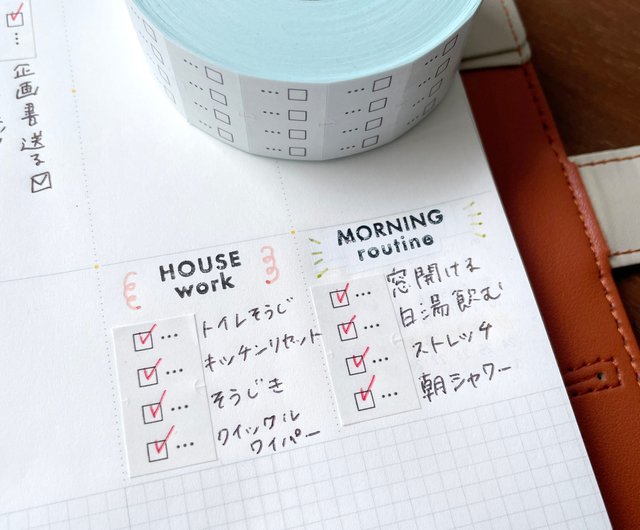 企画書送る
HOUSE
work
トイレそうじ
キッチンリセット
そうじき
クイックル
ワイパー
MORNING
routine
窓開ける
白湯飲む
ストレッチ
朝シャワー